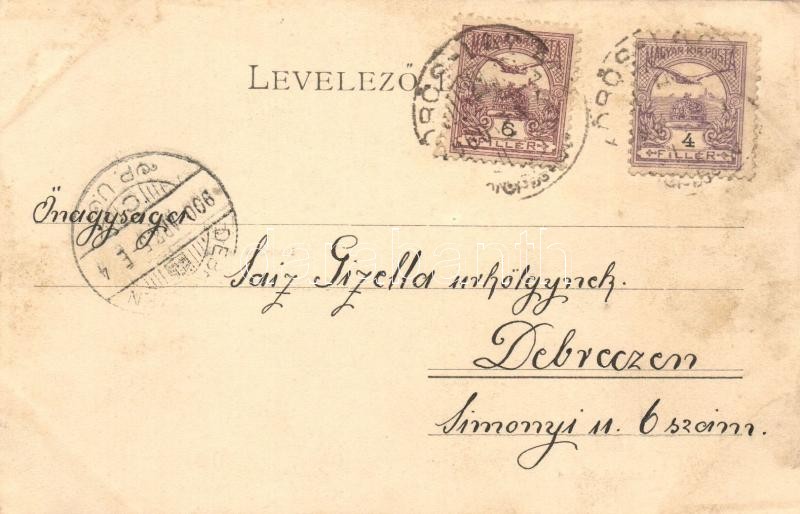 LEVELEZŐ
MAGYAR KIR. POSTA
6
FILLÉR
MAGYAR KIR. POSTA
4
FILLÉR
Őnagysága
Saiz Gizella urhölgynek.
Debreczen
Simonyi u. 6 szám.